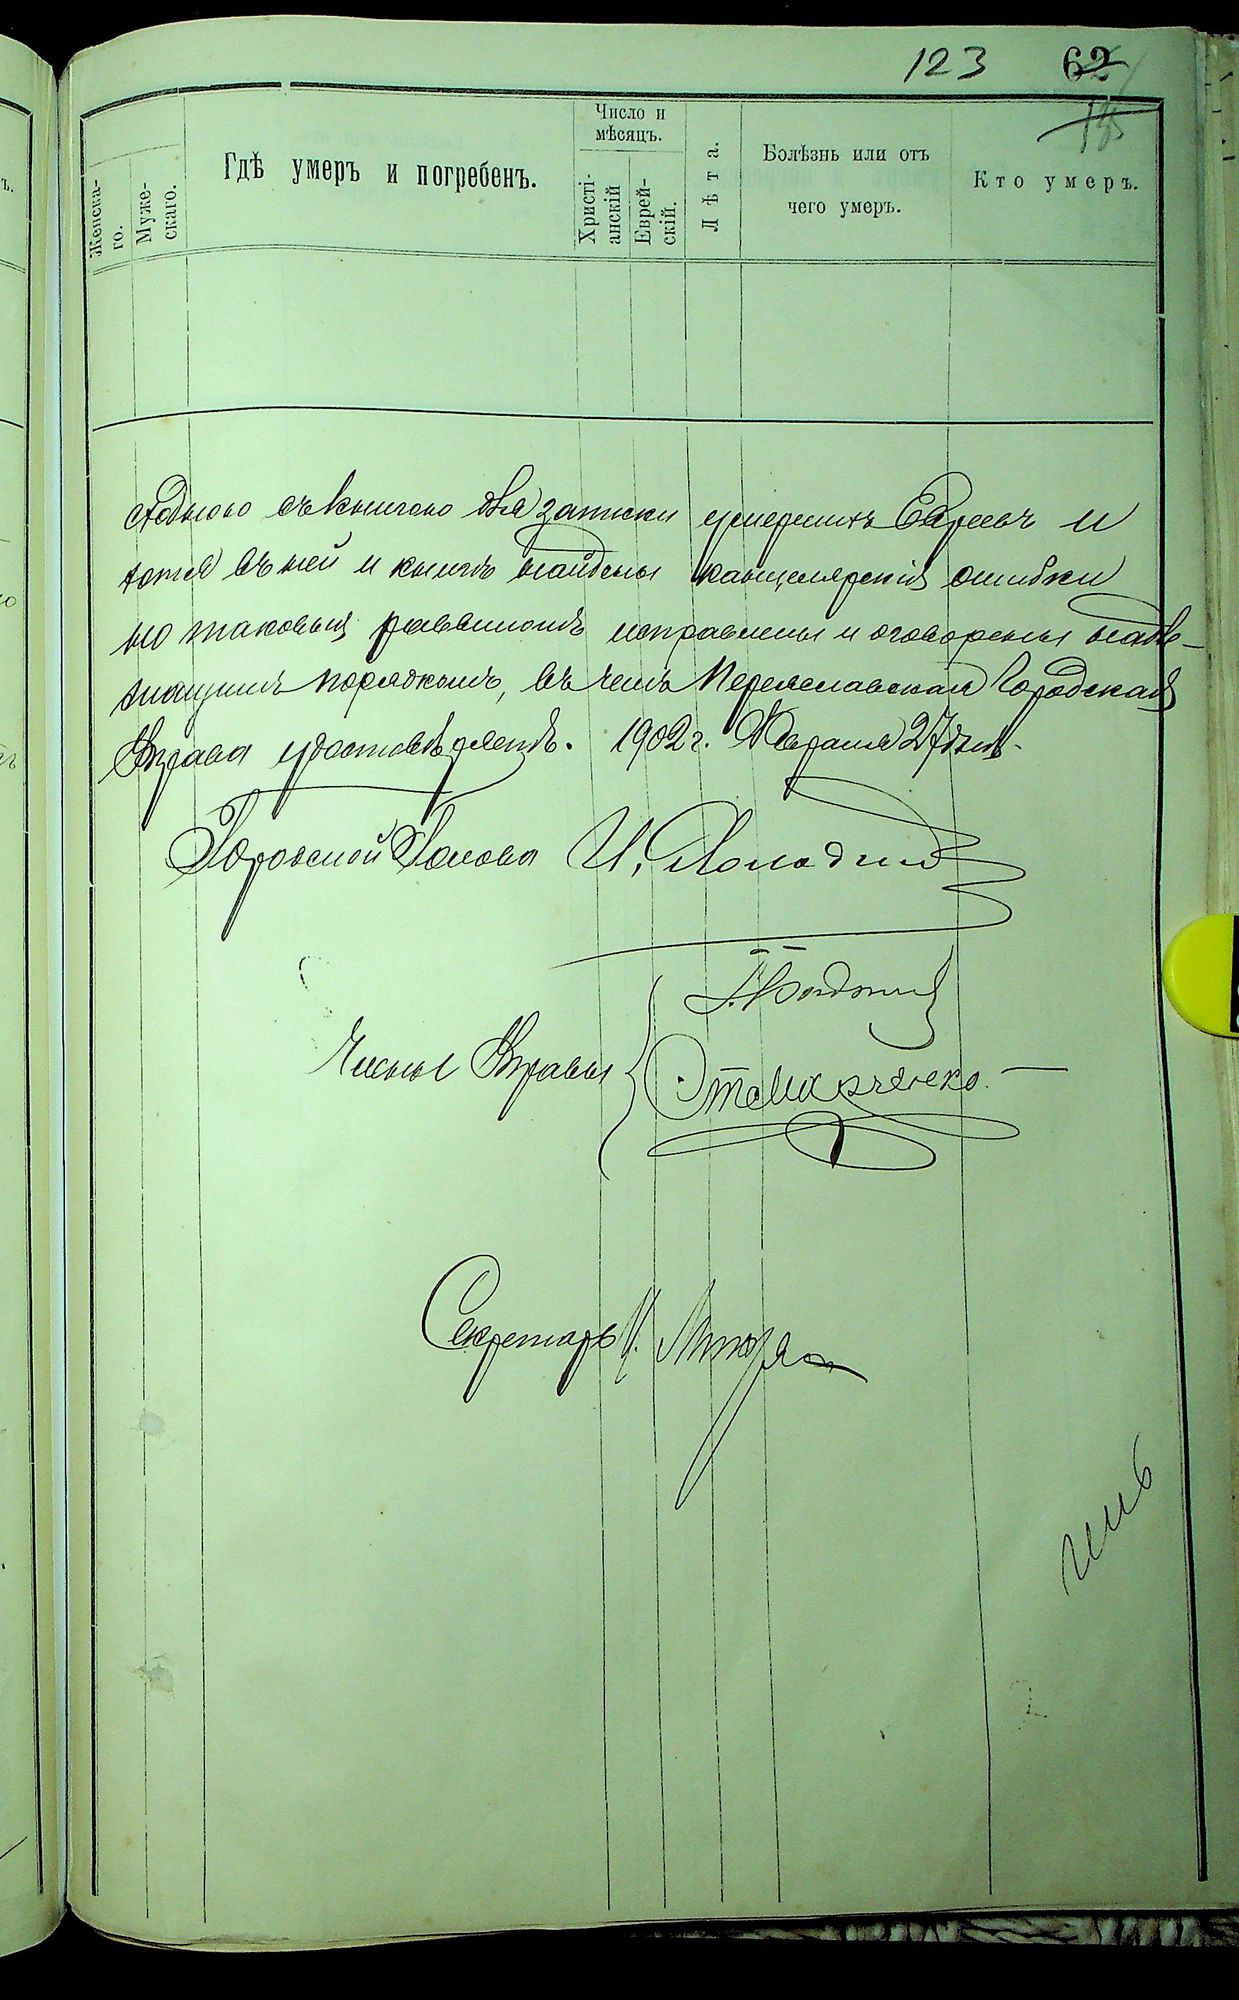 123 62
Число и
мѣсяцъ.
Женска-
го.
Муже-
скаго.
Гдѣ умеръ и погребенъ.
Христі-
анскій
Еврей-
скій.
Лѣта.
Болѣзнь или отъ
чего умеръ.
Кто умеръ.
сходною съ книгою для записки умершихъ Евреевъ и
хотя въ ней и книгѣ найдены канцелярскія ошибки
но таковыя раввиномъ исправлены и оговорены надле-
жащимъ порядкомъ, въ чемъ Переяславская Городская
Управа удостовѣряетъ. 1902 г. Февраля 27 дня.
Городской Голова И.
Члены Управы
Секретарь